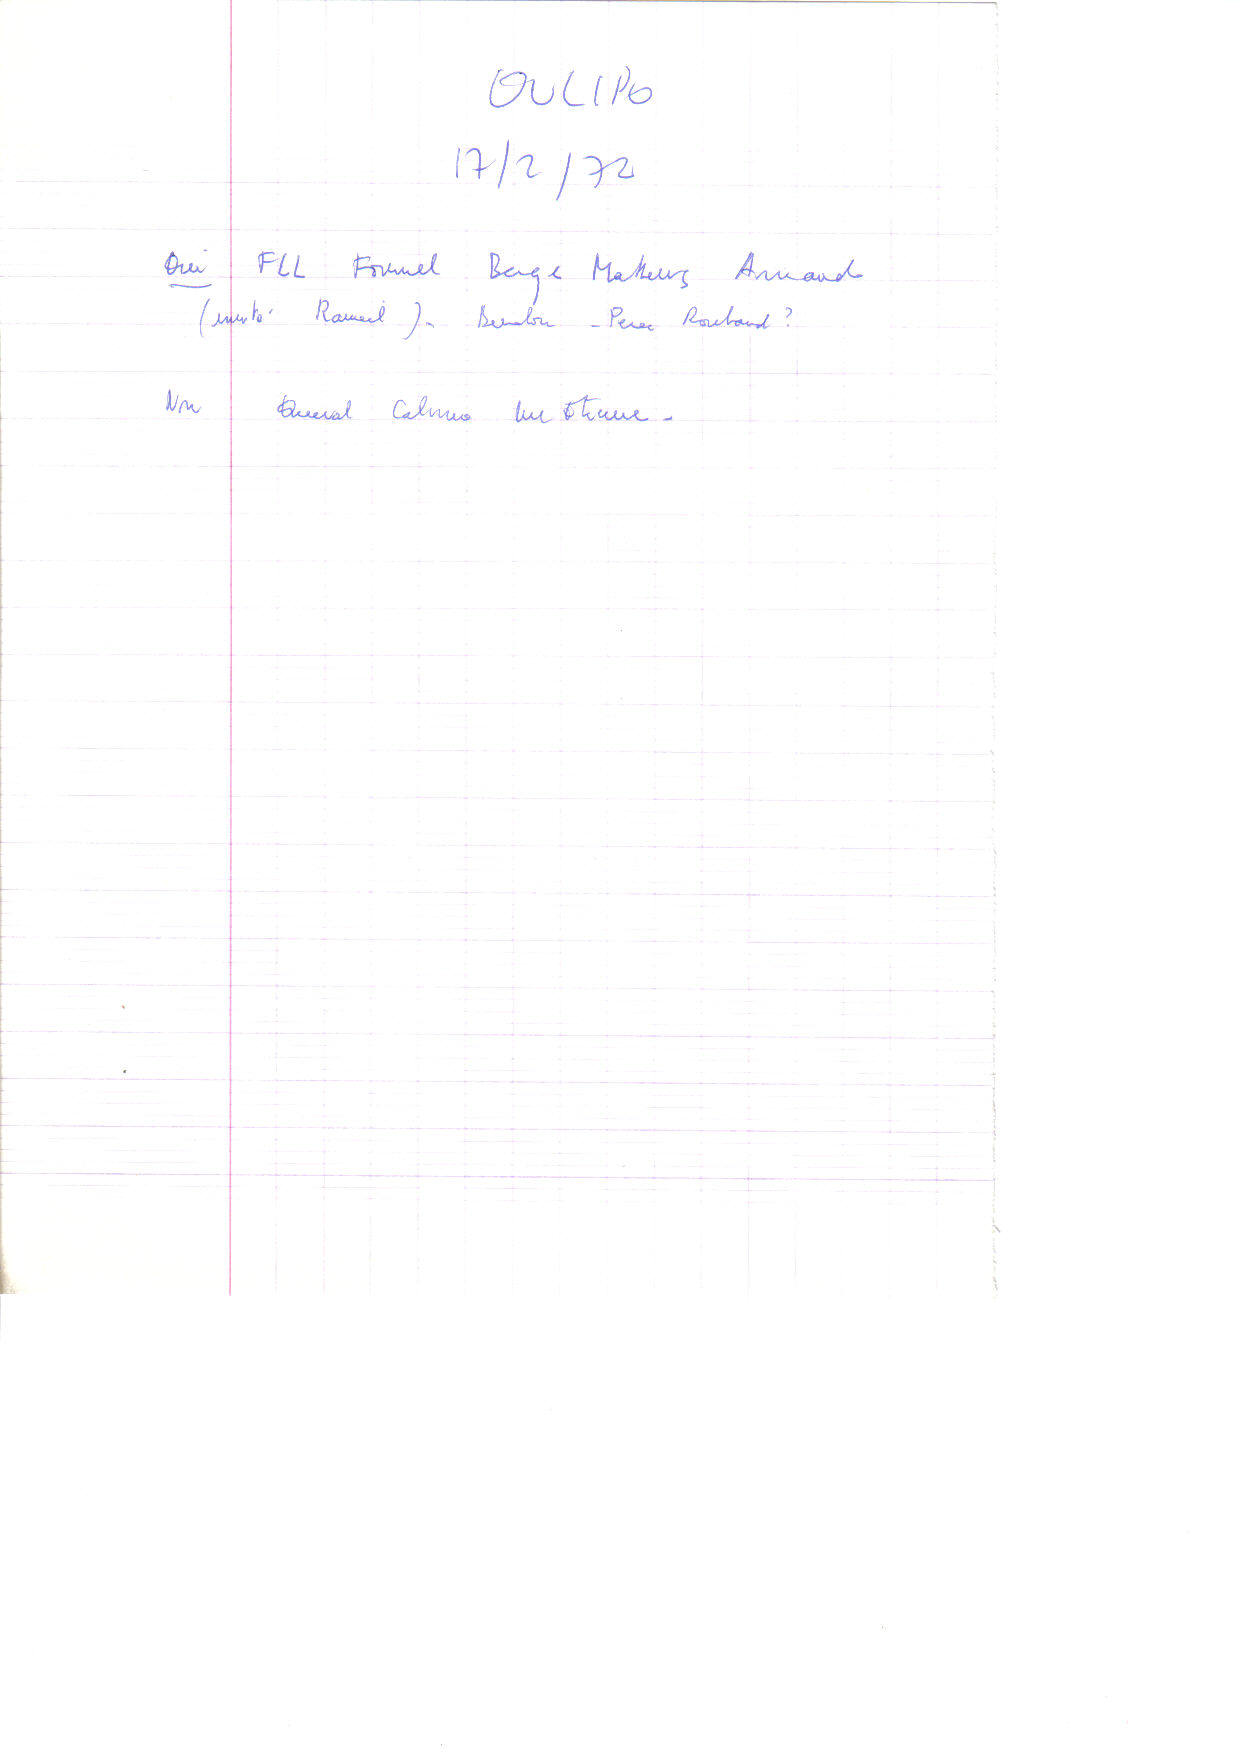 OULIPO
17/2/72
Oui FLL Fournel Berge Mathews Arnaud
(invité Rameil). Benabou - Perec Roubaud?
Non Queval Calvino Luc Etienne -